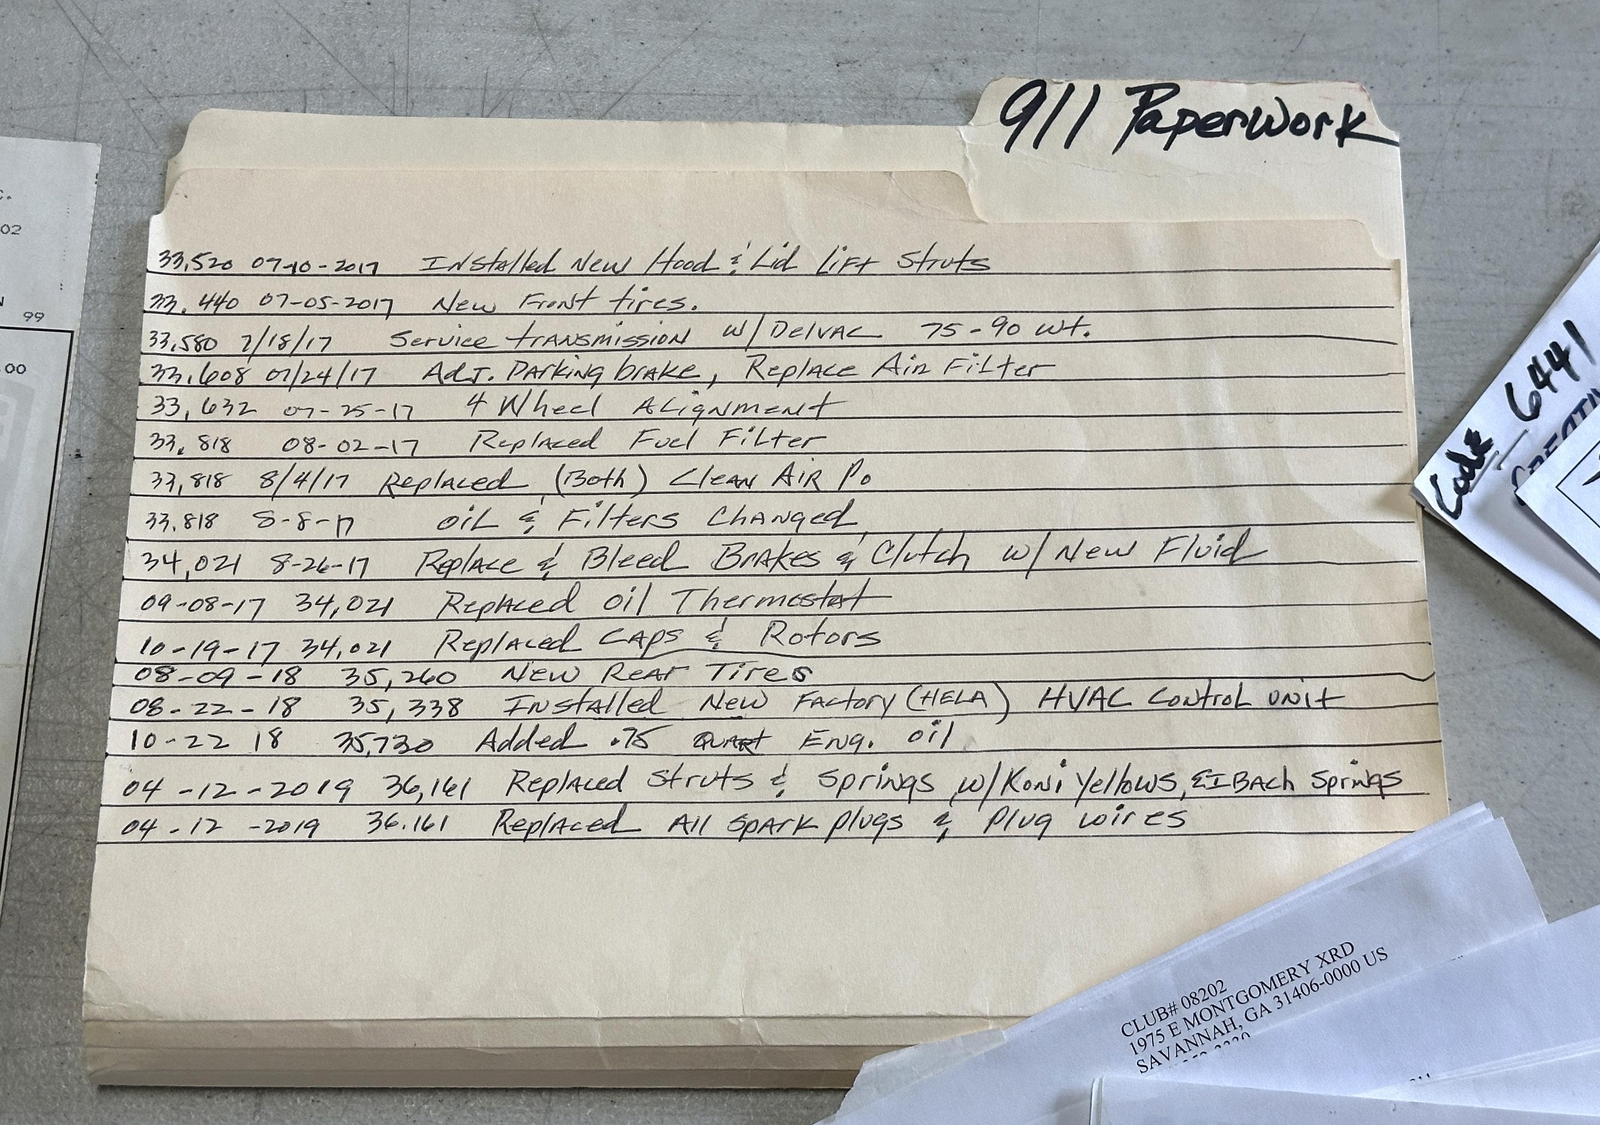 911 Paperwork
33,520 07-10-2017 Installed New Hood & Lid Lift Struts
33,440 07-05-2017 New Front tires.
33,580 7/18/17 Service transmission w/ Delvac 75-90 wt.
33,608 07/24/17 Adj. Parking brake, Replace Air Filter
33,632 07-25-17 4 Wheel Alignment
33,818 08-02-17 Replaced Fuel Filter
33,818 8/4/17 Replaced (Both) Clean Air Po
33,818 8-8-17 Oil & Filters Changed
34,021 8-26-17 Replace & Bleed Brakes & Clutch w/ New Fluid
09-08-17 34,021 Replaced Oil Thermostat
10-19-17 34,021 Replaced Caps & Rotors
08-09-18 35,260 New Rear Tires
08-22-18 35,338 Installed New Factory (HELA) HVAC Control unit
10-22 18 35,730 Added .75 Quart Eng. oil
04-12-2019 36,161 Replaced Struts & Springs w/ Koni Yellows, EIBach Springs
04-12-2019 36.161 Replaced All Spark plugs & Plug wires
02
99
.00
Code 6441
CLUB# 08202
1975 E MONTGOMERY XRD
SAVANNAH, GA 31406-0000 US